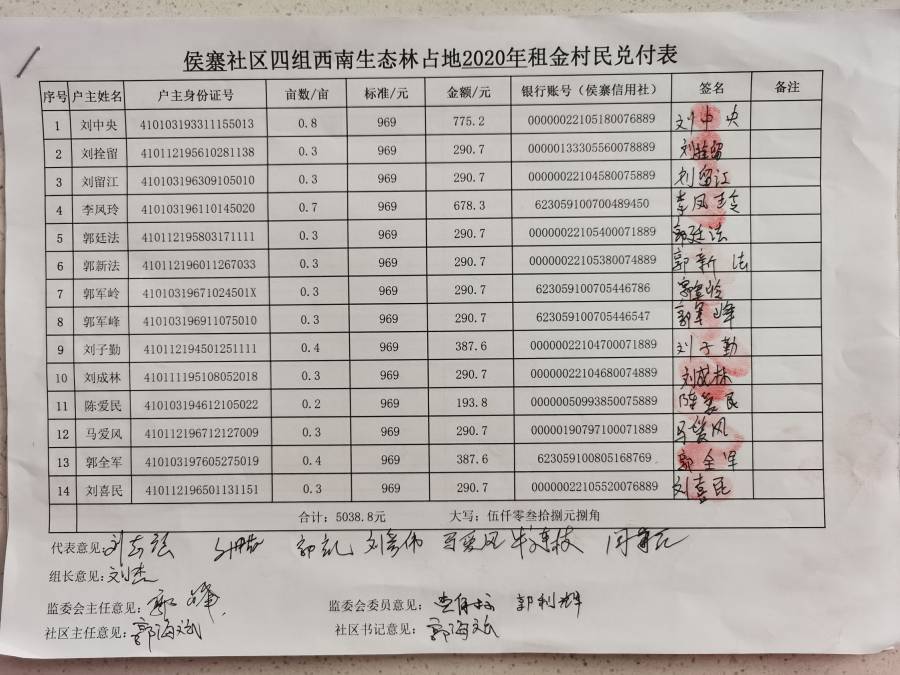 侯寨社区四组西南生态林占地2020年租金村民兑付表
序号 户主姓名 户主身份证号 亩数/亩 标准/元 金额/元 银行账号（侯寨信用社） 签名 备注
1 刘中央 410103193311155013 0.8 969 775.2 00000022105180076889 刘中央
2 刘拴留 410112195610281138 0.3 969 290.7 00000133305560078889 刘拴留
3 刘留江 410103196309105010 0.3 969 290.7 00000022104580075889 刘留江
4 李凤玲 410103196110145020 0.7 969 678.3 623059100700489450 李凤玲
5 郭廷法 410112195803171111 0.3 969 290.7 00000022105400071889 郭廷法
6 郭新法 410112196011267033 0.3 969 290.7 00000022105380074889 郭新法
7 郭军岭 41010319671024501X 0.3 969 290.7 623059100705446786 郭军岭
8 郭军峰 410103196911075010 0.3 969 290.7 623059100705446547 郭军峰
9 刘子勤 410112194501251111 0.4 969 387.6 00000022104700071889 刘子勤
10 刘成林 410111195108052018 0.3 969 290.7 00000022104680074889 刘成林
11 陈爱民 410103194612105022 0.2 969 193.8 00000050993850075889 陈爱民
12 马爱风 410112196712127009 0.3 969 290.7 00000190797100071889 马爱风
13 郭全军 410103197605275019 0.4 969 387.6 623059100805168769 郭全军
14 刘喜民 410112196501131151 0.3 969 290.7 00000022105520076889 刘喜民
合计：5038.8元 大写：伍仟零叁拾捌元捌角
代表意见： 马爱风
组长意见：刘杰
监委会主任意见： 监委会委员意见： 郭利辉
社区主任意见：郭海斌 社区书记意见：郭海斌